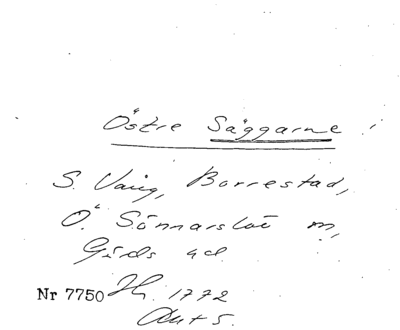 Östre Säggarne
S. Vång, Borrestad,
Ö. Sönnarslöv m,
Gärds hd.
Nr 7750 H. 1772
Akt 5.